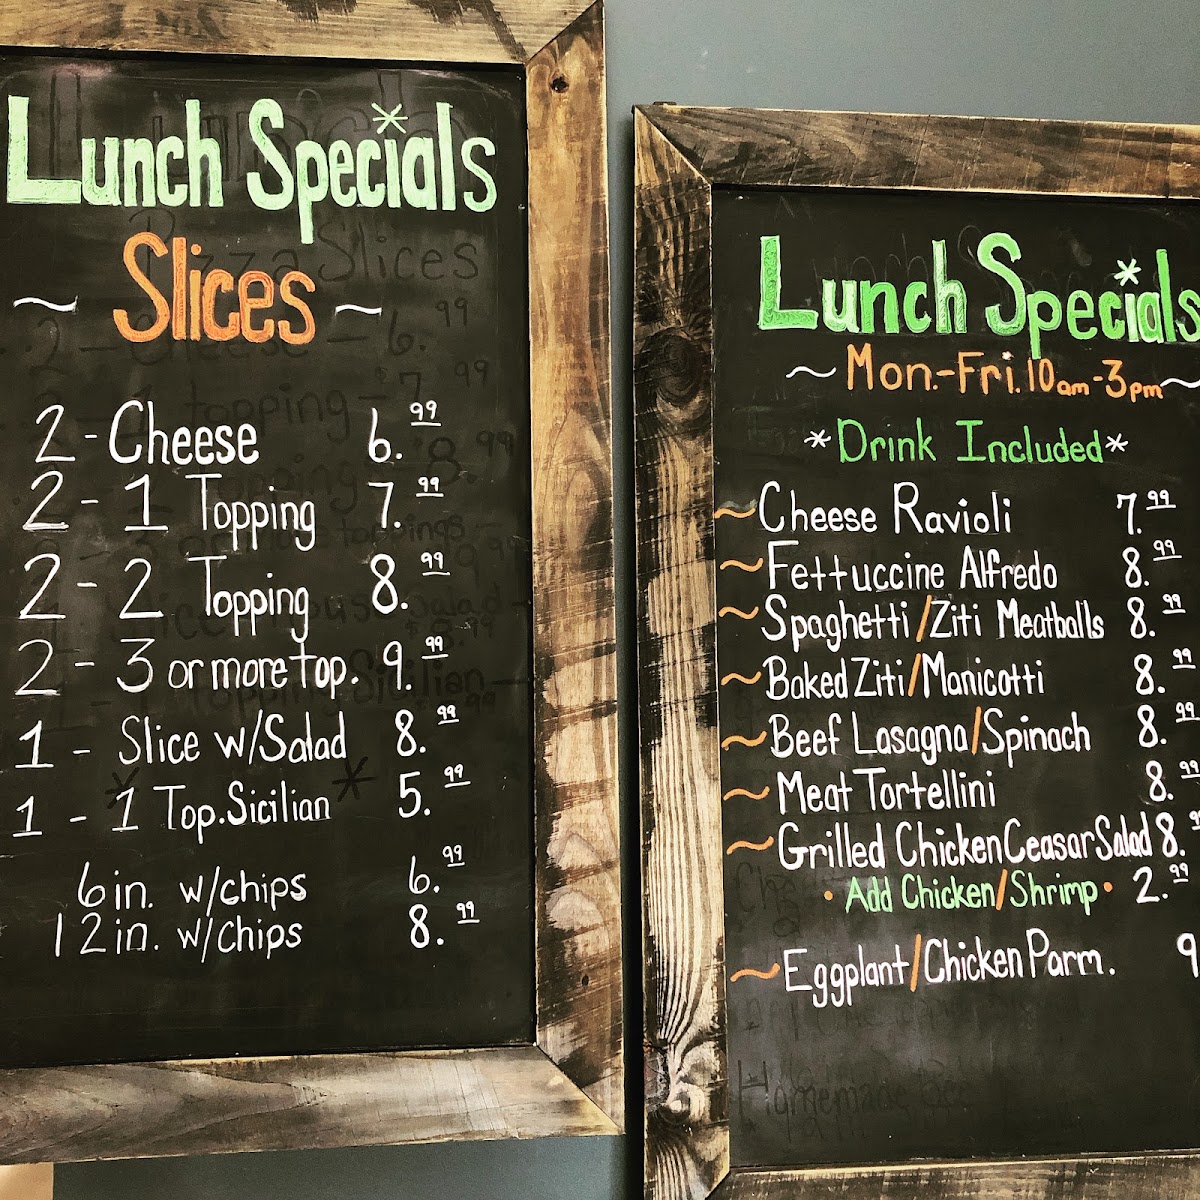 Lunch Specials
~ Slices ~
2 - Cheese 6.99
2 - 1 Topping 7.99
2 - 2 Topping 8.99
2 - 3 or more top. 9.99
1 - Slice w/Salad 8.99
1 - 1 Top. Sicilian 5.99
6in. w/chips 6.99
12in. w/chips 8.99
Lunch Specials
~ Mon.-Fri. 10am-3pm ~
*Drink Included*
~Cheese Ravioli 7.99
~Fettuccine Alfredo 8.99
~Spaghetti/Ziti Meatballs 8.99
~Baked Ziti/Manicotti 8.99
~Beef Lasagna/Spinach 8.99
~Meat Tortellini 8.99
~Grilled Chicken Ceasar Salad 8.99
• Add Chicken/Shrimp • 2.99
~Eggplant/Chicken Parm. 9